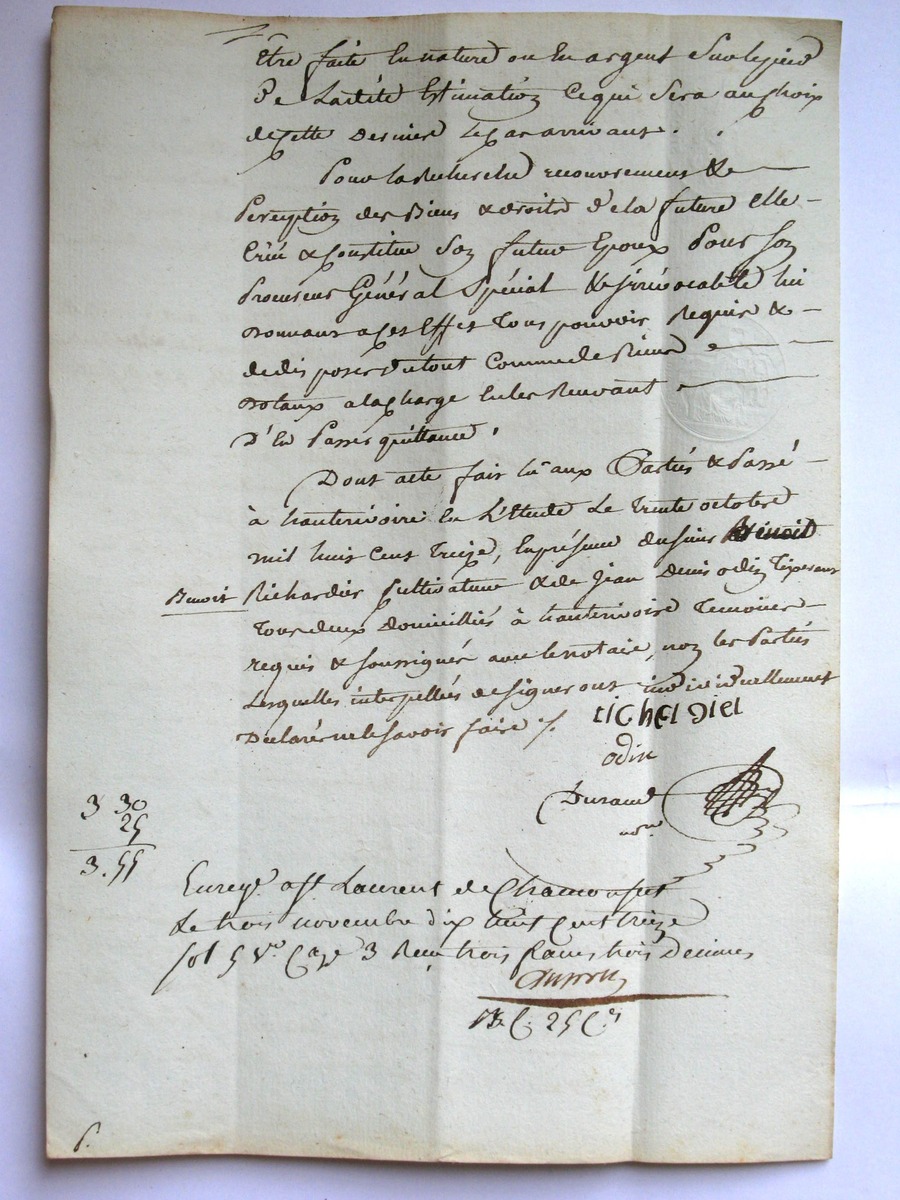 Etre faite En nature ou En argent Sur le pied
De Ladite Estimation Ce qui Sera au choix
de Cette Derniere Le Cas arrivant.
Pour la Recherche recouvrement &
Perception des Biens & droits de la future Elle
Créé & Constitue Son futur Epoux Pour Son
Procureur Général Spécial & irrévocable lui
Donnant a Cet Effet Tous pouvoirs Requis &
de disposer du tout Comme de Biens
Dotaux a la Charge En les Recevant
D'En Passer quittance.
Dont acte fait lu aux Parties & Passé
à hauterivoire En L'Etude Le Trente octobre
mil huit Cent Treize, En présence du Sieur Benoit
Benoit
Richardier Cultivateur & de Jean Denis odin Tisserant
Tous deux Domiciliés à hauterivoire Temoins
requis & Soussignés avec le notaire, non les Parties
Lesquelles interpellées de Signer ont individuellement
Declaré ne le Savoir faire ./.
odin
Durand
nore
3 30
25
3.55
Enregé a St Laurent de Chamousset
Le trois novembre dix huit Cent treize
fol 5 Vo Case 3 Reçu trois francs trois Decimes
25 Ces